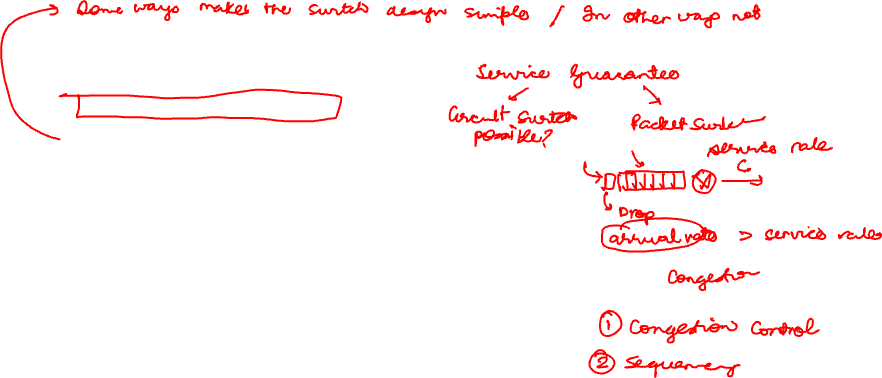 Some ways makes the switch design simple / In other ways not
Service Guarantee
Circuit Switch
possible?
Packet Switch
service rate
C
Drop
arrival rate > service rate
Congestion
① Congestion Control
② Sequencing